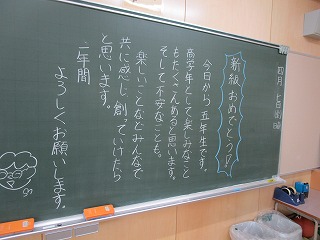 四月七日
進級 おめでとう!!
今日から 五年生です。
高学年として楽しみなこと
もたくさんあると思います。
そして不安なことも。
楽しいことなどみんなで
共に感じ、創っていけたら
と思います。
一年間
よろしくお願いします。